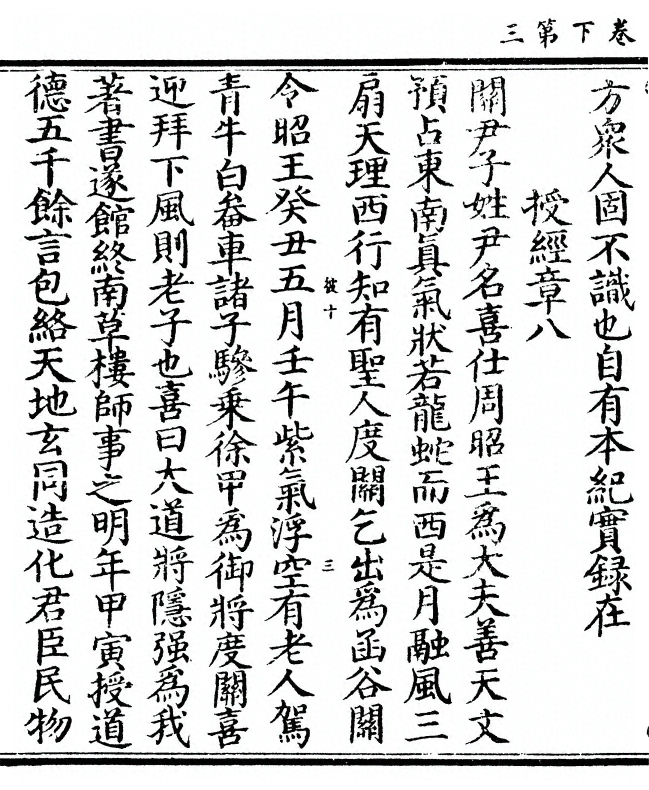 卷下第三
方衆人固不識也自有本紀實録在
授經章八
關尹子姓尹名喜仕周昭王爲大夫善天文
預占東南真氣狀若龍蛇而西是月融風三
扇天理西行知有聖人度關乞出爲函谷關
令昭王癸丑五月壬午紫氣浮空有老人駕
青牛白畚車諸子驂乗徐甲爲御將度關喜
迎拜下風則老子也喜曰大道將隱强爲我
著書遂館終南草樓師事之明年甲寅授道
德五千餘言包絡天地玄同造化君臣民物